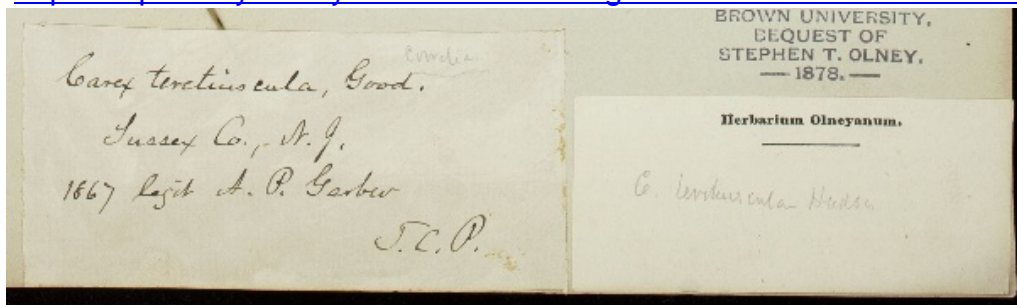 Carex teretiuscula, Good.
Sussex Co., N. J.
1867 legit A. P. Garber
T. C. P.
BROWN UNIVERSITY,
BEQUEST OF
STEPHEN T. OLNEY.
— 1878. —
Herbarium Olneyanum.
C. teretiuscula